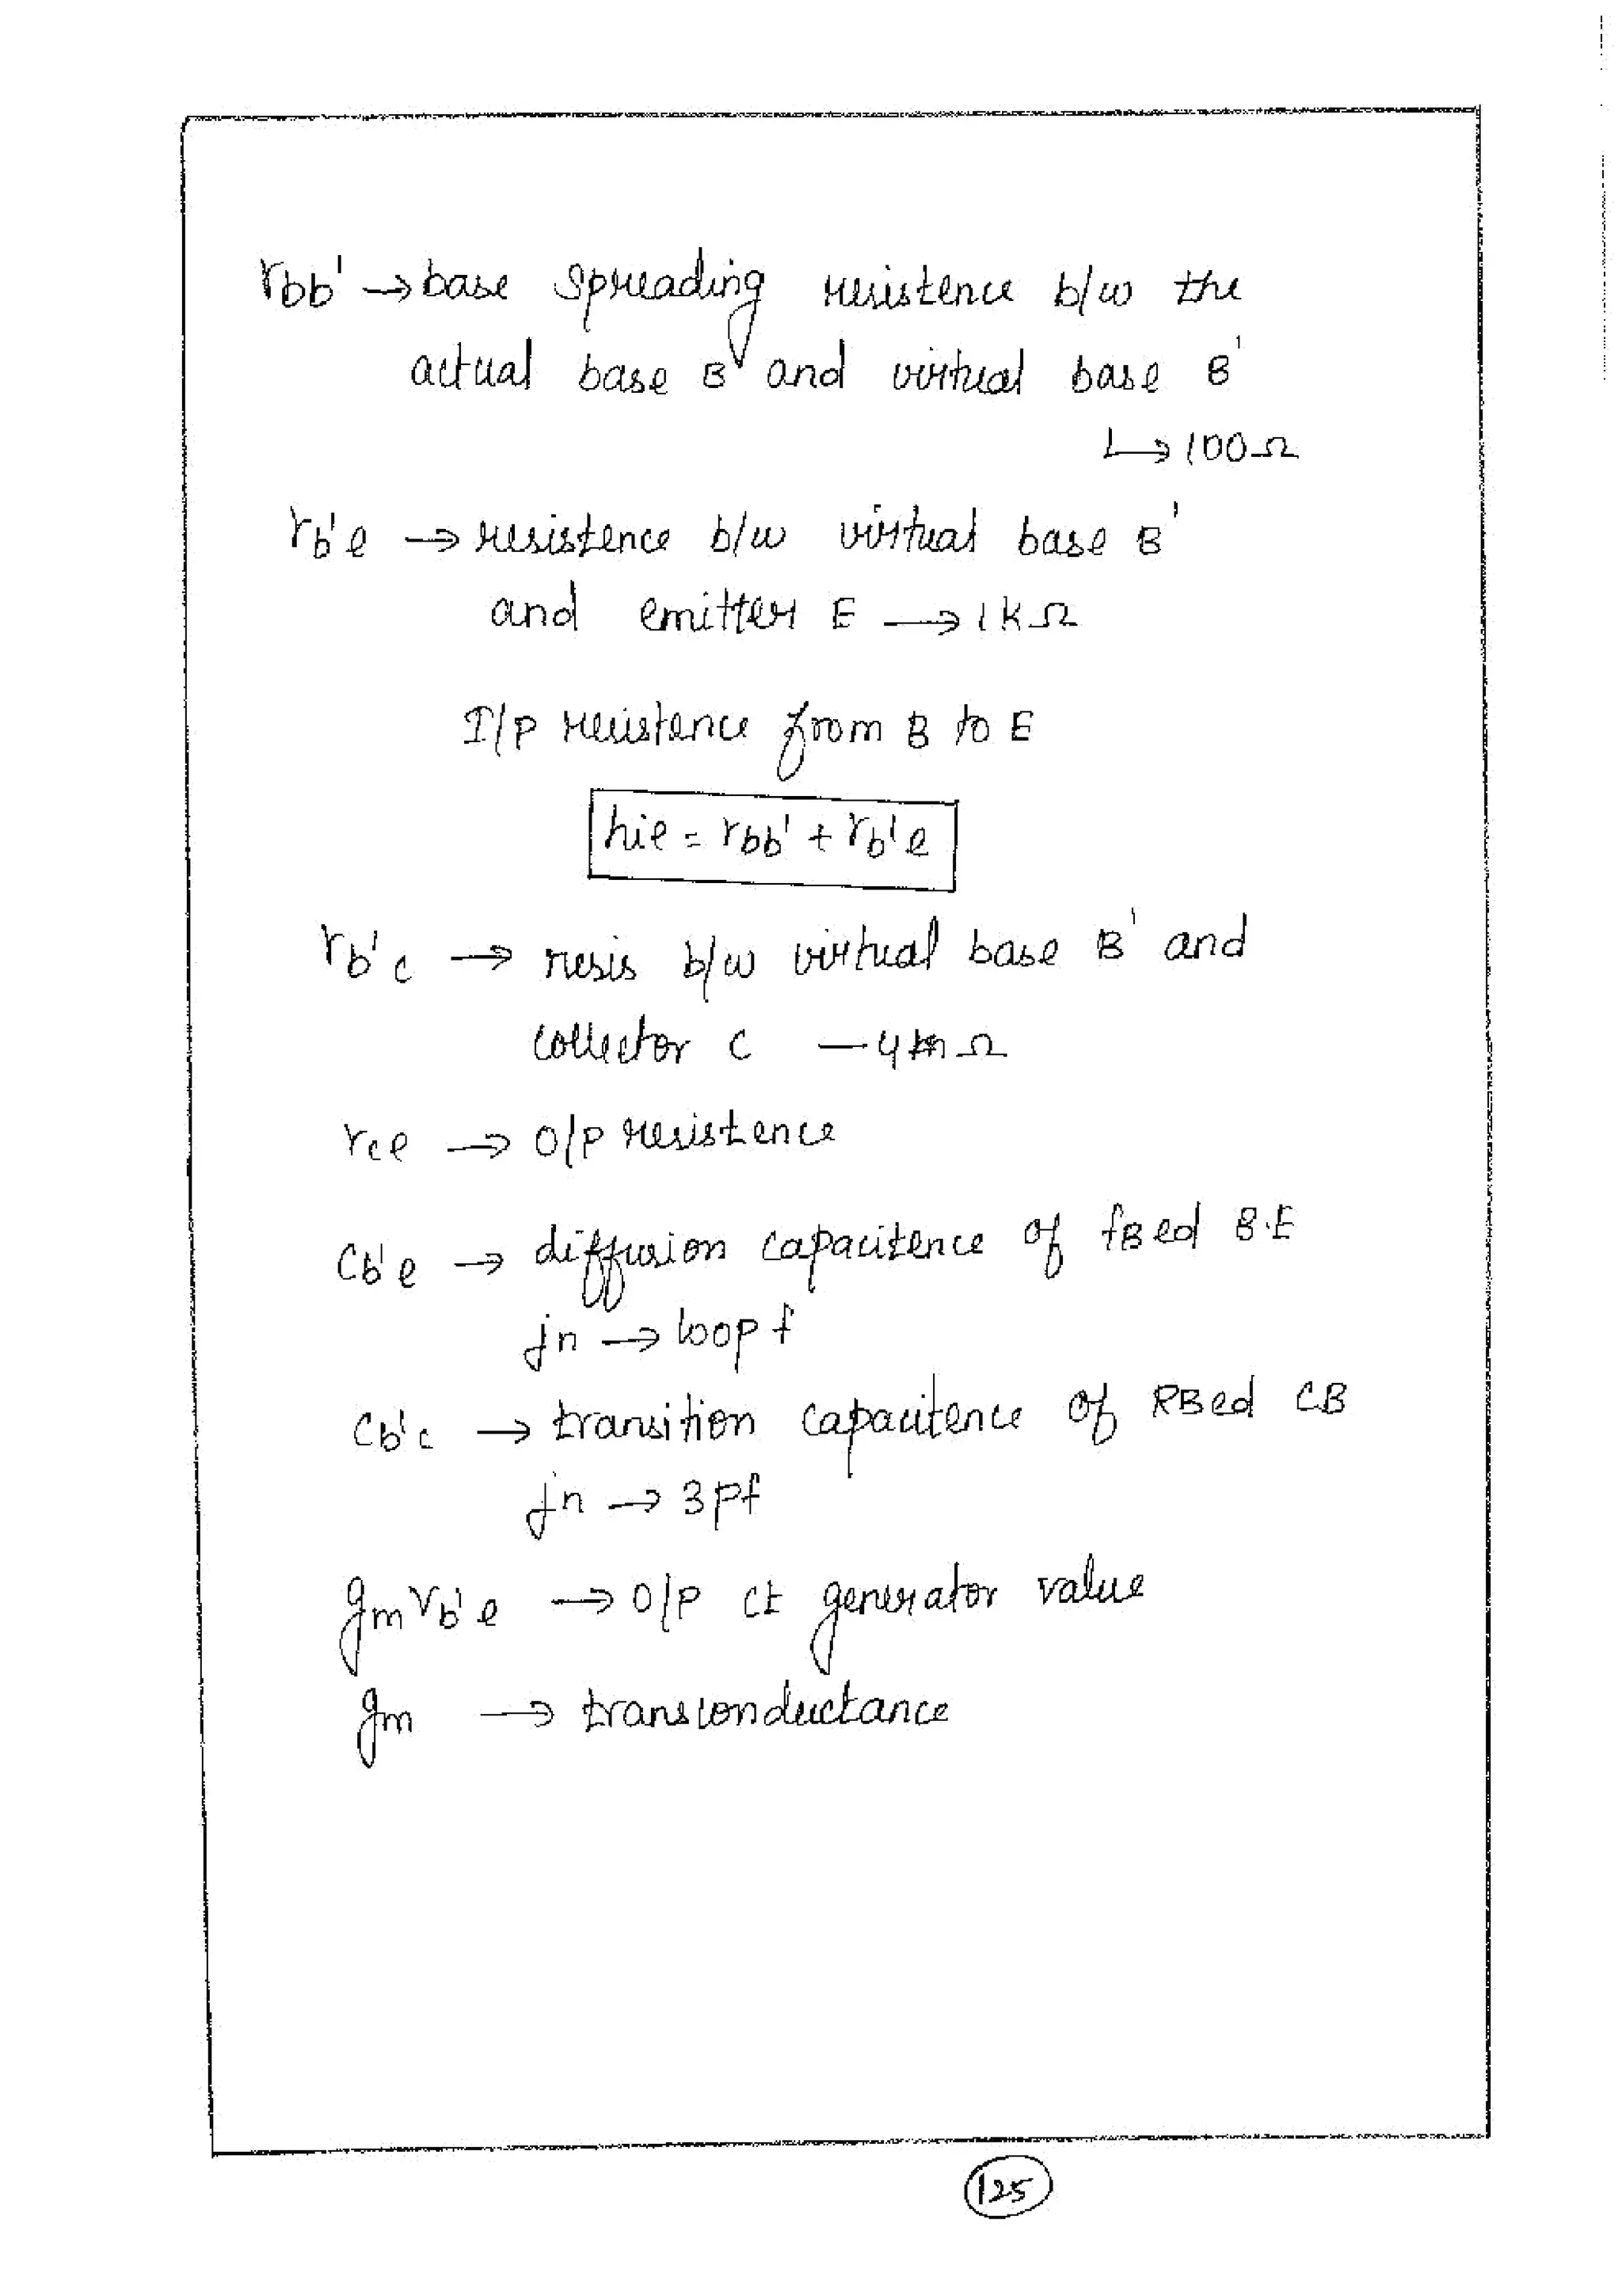 rbb' → base spreading resistence b/w the
actual base B and virtual base B'
↳ 100Ω
rb'e → resistence b/w virtual base B'
and emitter E → 1kΩ
I/p resistence from B to E
hie = rbb' + rb'e
rb'c → resis b/w virtual base B' and
collector C — 4 Ω
rce → O/p resistence
Cb'e → diffusion capacitence of fBed B.E
jn → 100pf
Cb'c → transition capacitence of RBed CB
jn → 3pf
gmVb'e → O/p ct generator value
gm → transconductance
125